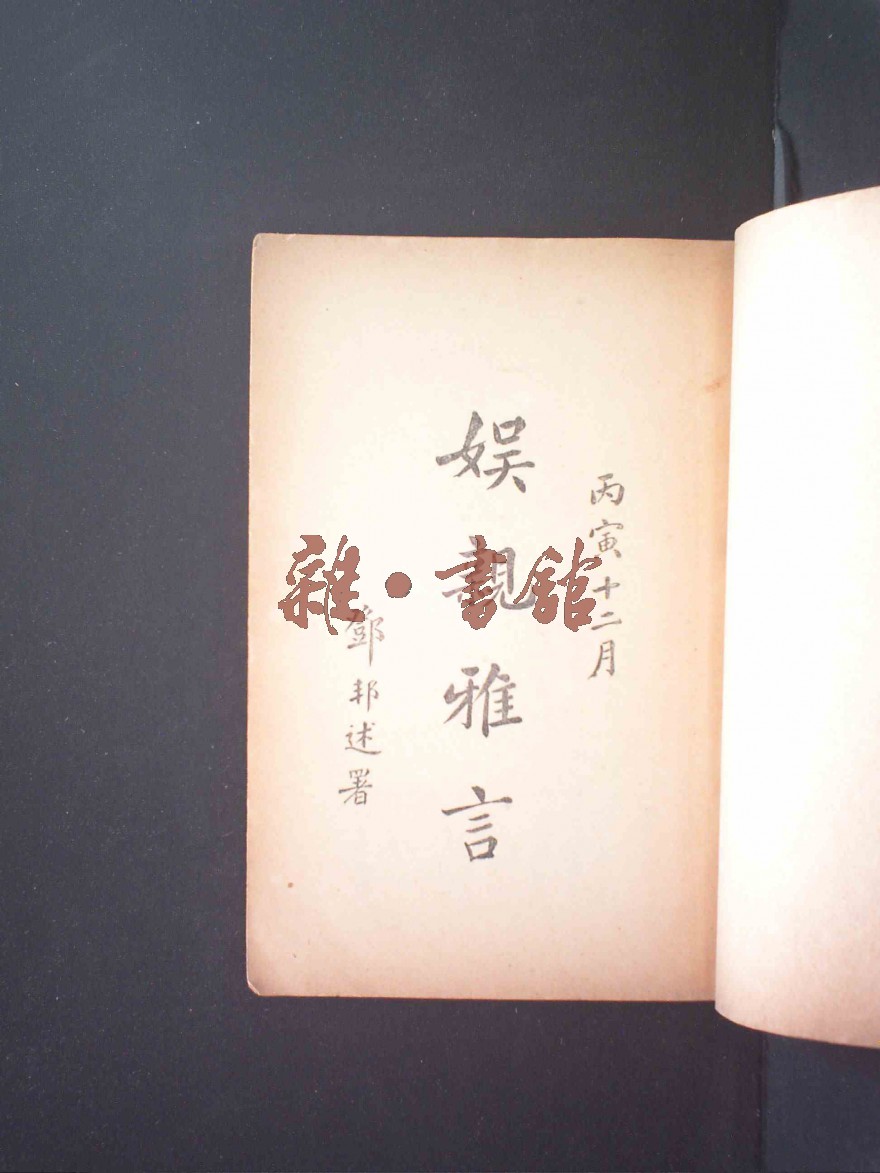 丙寅十二月
娱親雅言
鄧邦述署
雜·書館